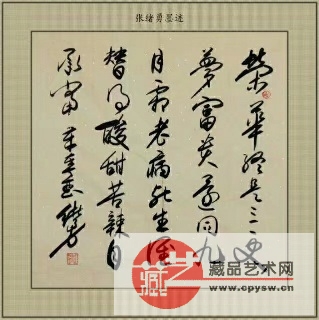 张绪勇墨迹
荣华终是三更
梦富贵还同九
月霜老病死生谁
替得酸甜苦辣自
承当
藏艺
藏品艺术网
www.cpysw.cn